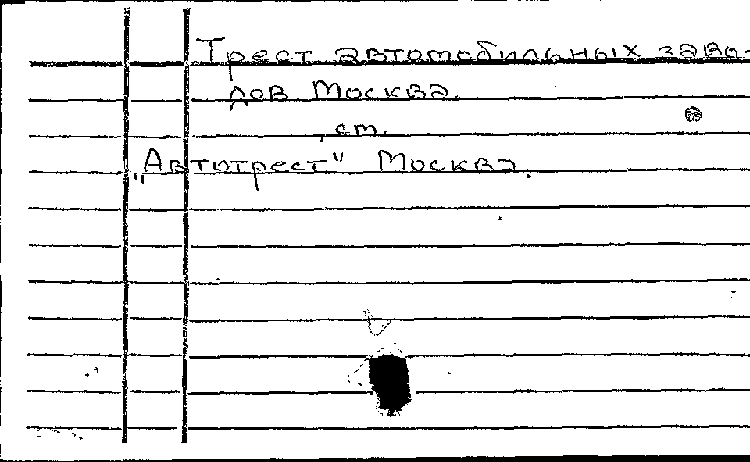 Трест автомобильных заво-
дов Москва.
, ст.
„Автотрест" Москва.